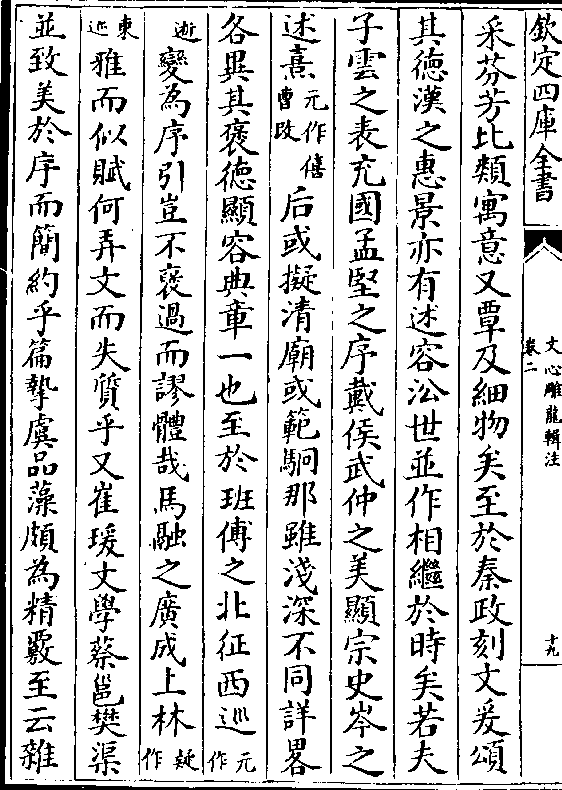 欽定四庫全書
文心雕龍輯注
卷二
十九
采芬芳比類寓意又覃及細物矣至於秦政刻文爰頌
其德漢之惠景亦有述容沿世並作相繼於時矣若夫
子雲之表充國孟堅之序戴侯武仲之美顯宗史岑之
述熹元作僖曹改后或擬清廟或範駉那雖淺深不同詳畧
各異其褒德顯容典章一也至於班傅之北征西巡元作
逝變為序引豈不褒過而謬體哉馬融之廣成上林疑作
東巡雅而似賦何弄文而失質乎又崔瑗文學蔡邕樊渠
並致美於序而簡約乎篇摯虞品藻頗為精覈至云雜